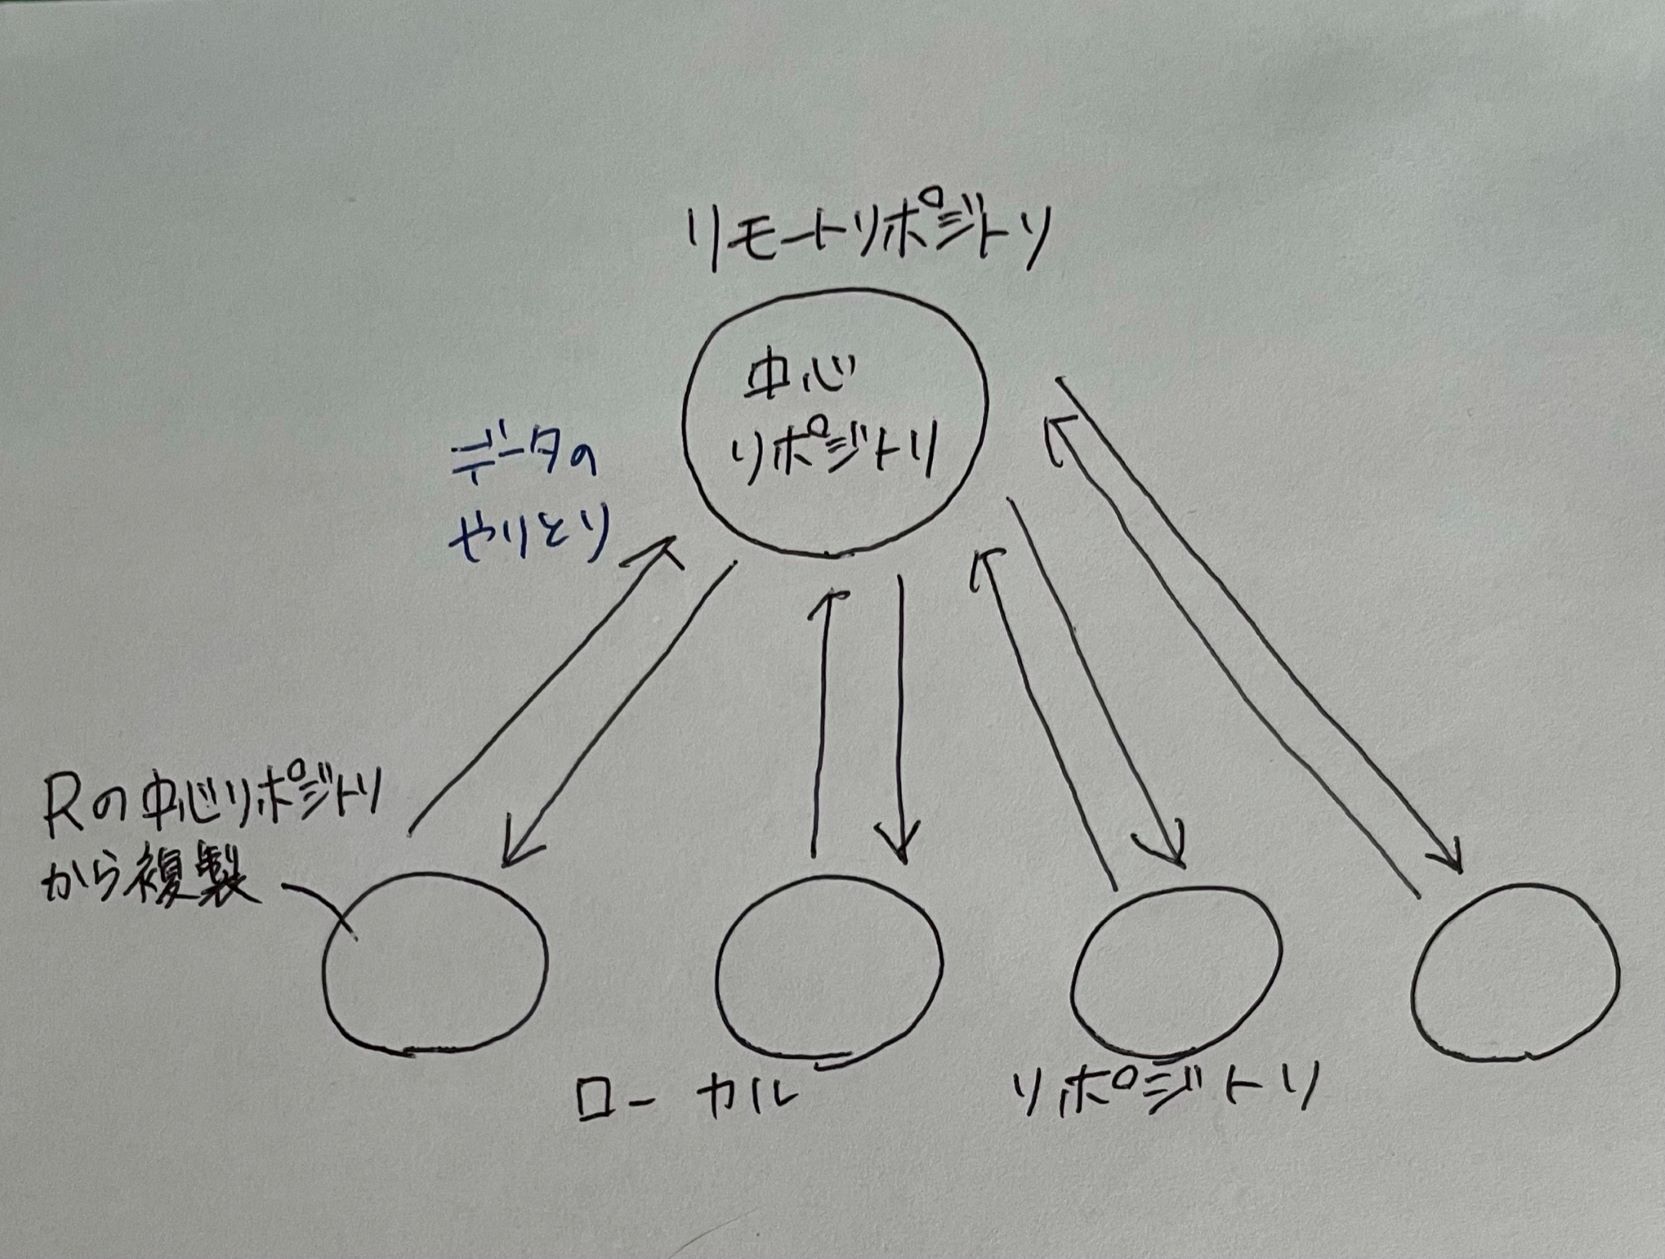 リモートリポジトリ
中心
リポジトリ
データの
やりとり
Rの中心リポジトリ
から複製
ローカル リポジトリ